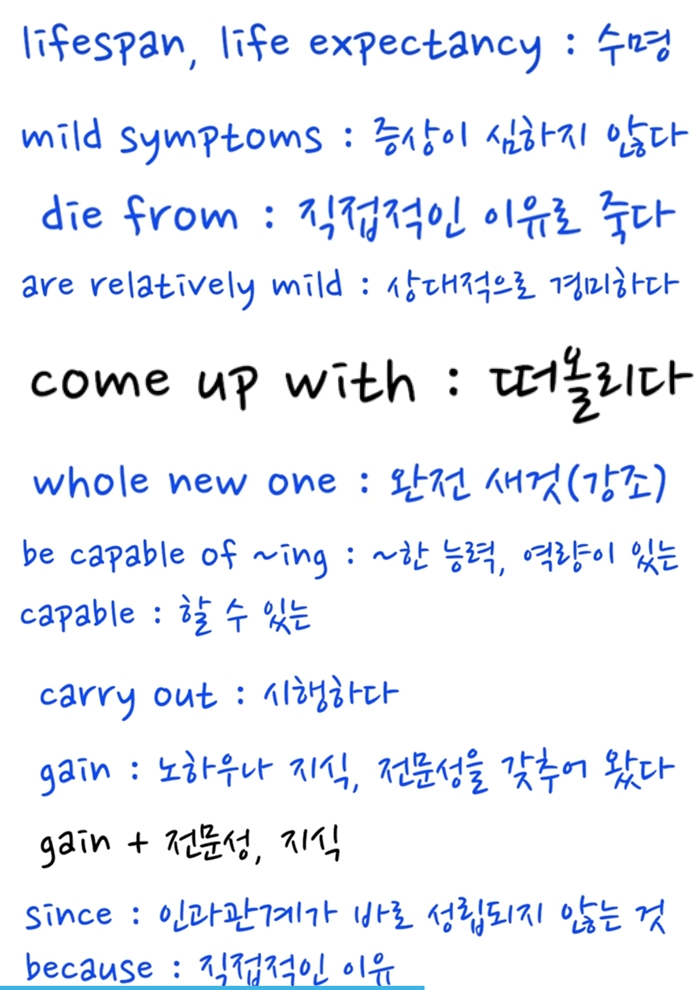 lifespan, life expectancy : 수명
mild symptoms : 증상이 심하지 않다
die from : 직접적인 이유로 죽다
are relatively mild : 상대적으로 경미하다
come up with : 떠올리다
whole new one : 완전 새것(강조)
be capable of ~ing : ~한 능력, 역량이 있는
capable : 할 수 있는
carry out : 시행하다
gain : 노하우나 지식, 전문성을 갖추어 왔다
gain + 전문성, 지식
since : 인과관계가 바로 성립되지 않는 것
because : 직접적인 이유